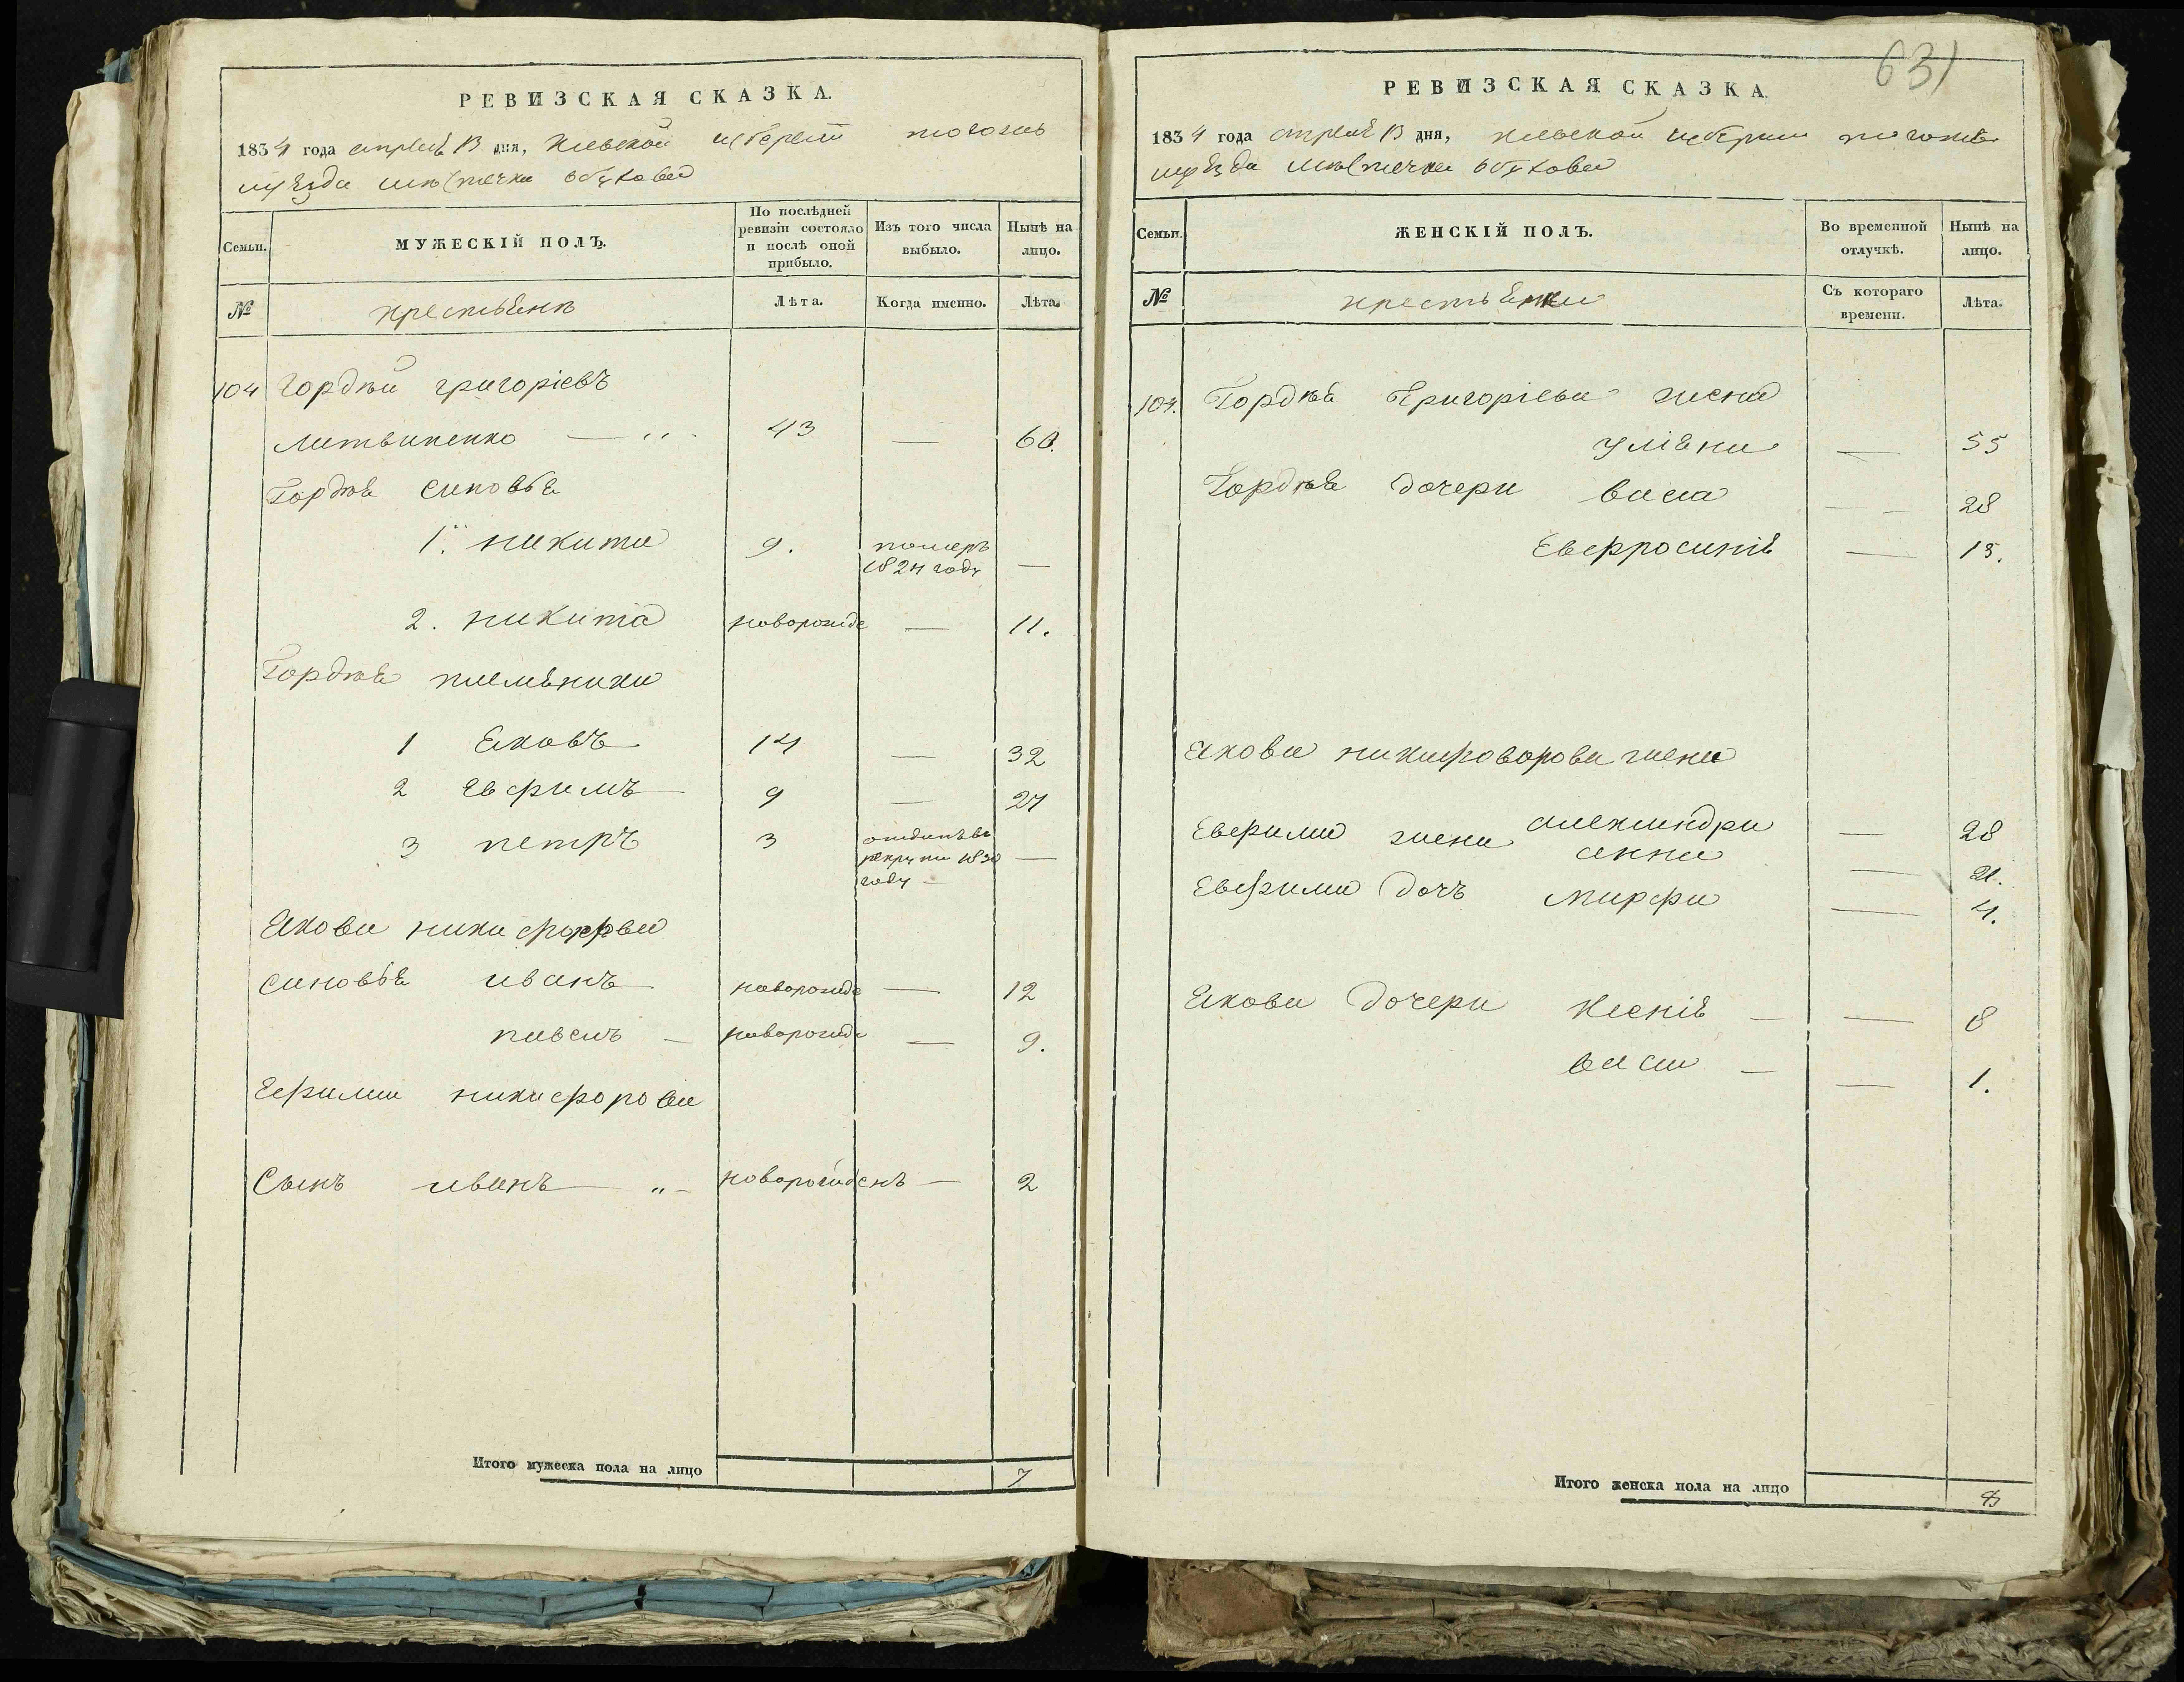 РЕВИЗСКАЯ СКАЗКА.
1834 года апреля 13 дня, Киевской губернии
уезда местечка обухова
Семьи.
МУЖЕСКІЙ ПОЛЪ.
По послѣдней ревизіи состояло и послѣ оной прибыло.
Изъ того числа выбыло.
Нынѣ на лицо.
№
крестьянъ
Лѣта.
Когда именно.
Лѣта.
104 Гордѣй григоріевъ
Литвиненко — 43 — 60.
Гордѣя синовья
1. никита 9. померъ 1824 году —
2. никита новорожде — 11.
Гордѣя племяники
1 Яковъ 14 — 32
2 Евфимъ 9 — 27
3 петръ 3 отданъ въ рекруты 1830 году —
Якова никифорова
синовья иванъ новорожде — 12
павелъ — новорожде — 9.
Ефима никифорова
Сынъ иванъ — новорожденъ — 2
Итого мужеска пола на лицо 7
631
РЕВИЗСКАЯ СКАЗКА.
1834 года апреля 13 дня, киевской губернии
уезда местечка обухова
Семьи.
ЖЕНСКІЙ ПОЛЪ.
Во временной отлучкѣ.
Нынѣ на лицо.
№
крестьянки
Съ котораго времени.
Лѣта.
104. Гордѣя Григоріева жена
уліяна — 55
Гордѣя дочери васа — — 28
Евфросинія — 13.
Якова никифорова жена
александра — 28
Евфима жена анна — 21.
Евфима дочъ марфа — 4.
Якова дочери Ксенія — — 8
васа — — 1.
Итого женска пола на лицо 8